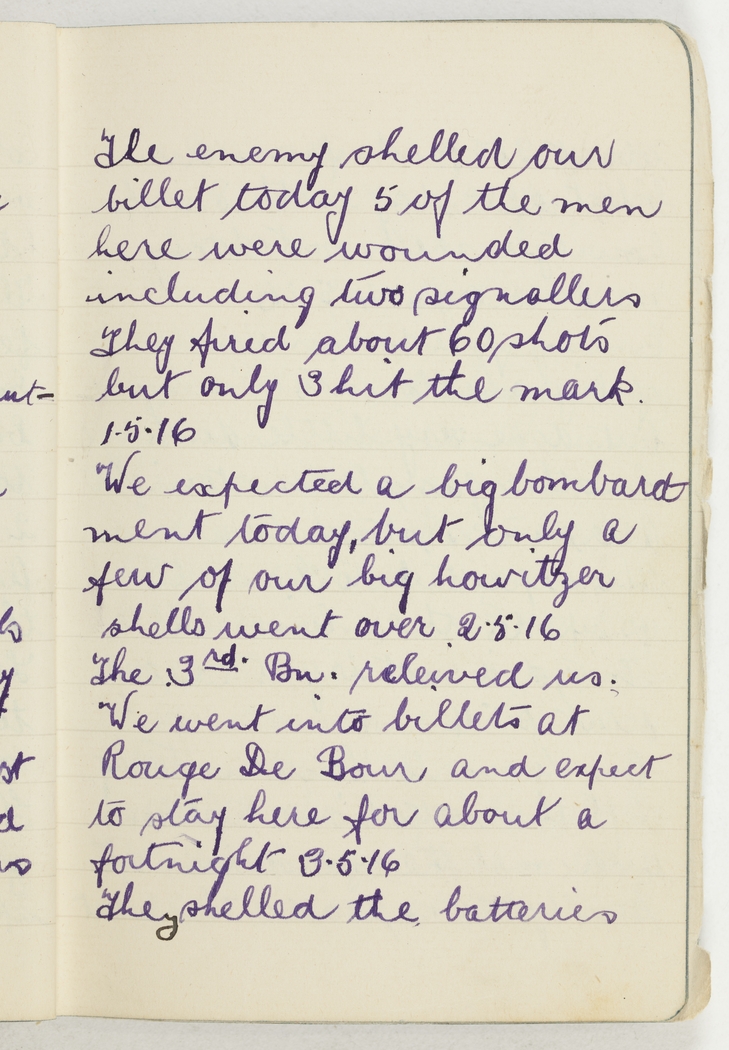 The enemy shelled our
billet today 5 of the men
here were wounded
including two signallers
They fired about 60 shots
but only 3 hit the mark.
1.5.16
We expected a big bombard
ment today, but only a
few of our big howitzer
shells went over 2.5.16
The 3rd. Bn. releived us.
We went into billets at
Rouge De Bour and expect
to stay here for about a
fortnight 3.5.16
They shelled the batteries